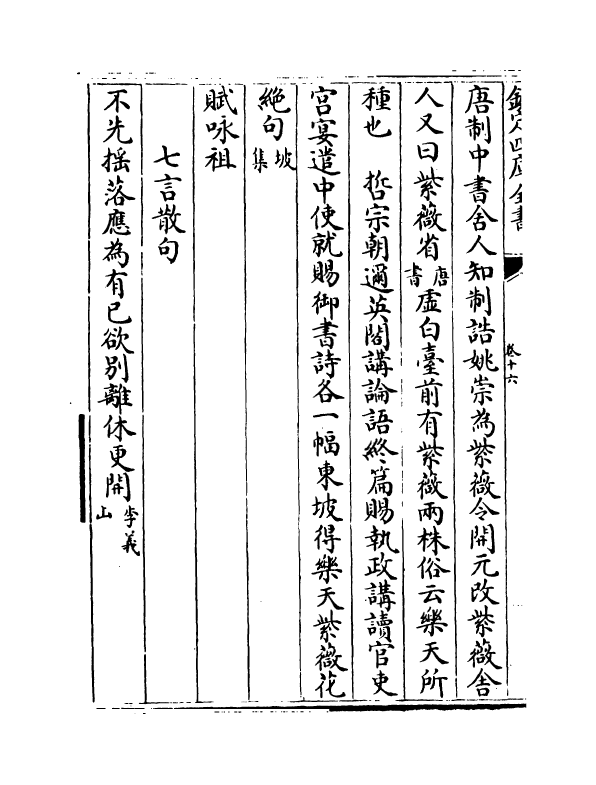 欽定四庫全書
卷十六
唐制中書舍人知制誥姚崇為紫薇令開元改紫薇舍
人又曰紫薇省唐書虛白臺前有紫薇兩株俗云樂天所
種也　哲宗朝邇英閣講論語終篇賜執政講讀官史
宮宴遣中使就賜御書詩各一幅東坡得樂天紫薇花
絶句坡集
賦咏祖
七言散句
不先揺落應為有已欲别離休更開李義山